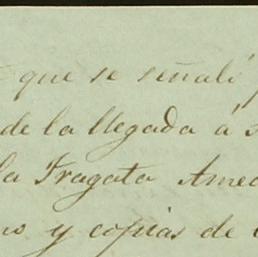 que se señaló
de la llegada á
la Fragata Ame
no y copias de